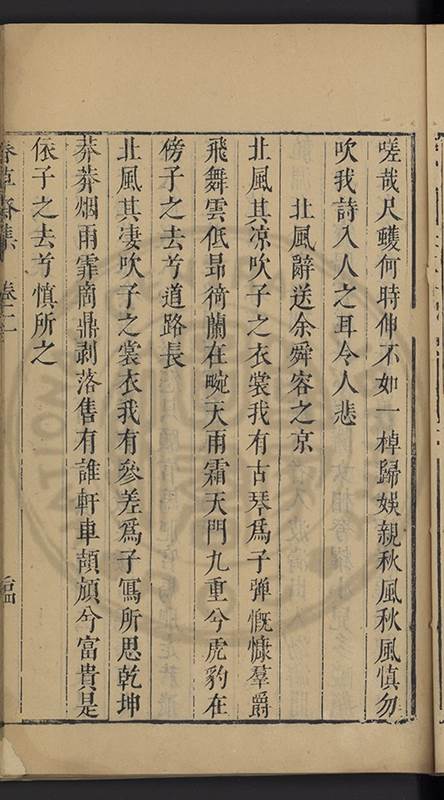 嗟哉尺蠖何時伸不如一棹歸娛親秋風秋風慎勿
吹我詩入人之耳令人悲
北風辭送余舜容之京
北風其凉吹子之衣裳我有古琴爲子彈慨慷羣爵
飛舞雲低昻猗蘭在畹天雨霜天門九重兮虎豹在
傍子之去兮道路長
北風其凄吹子之裳衣我有參差爲子寫所思乾坤
莽莽烟雨霏商鼎剥落售有誰軒車頡頏兮富貴是
依子之去兮慎所之
春草齋集 卷二